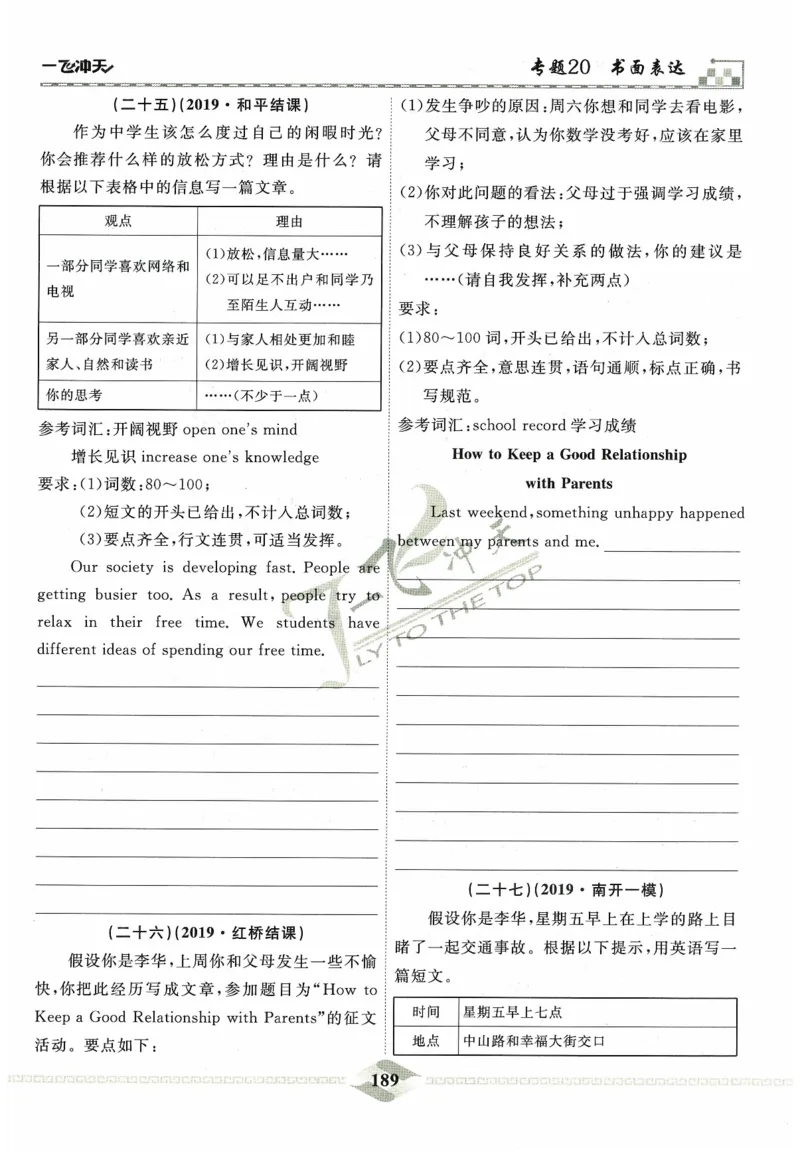 一飞冲天
专题20 书面表达
(二十五)(2019·和平结课)
作为中学生该怎么度过自己的闲暇时光?
你会推荐什么样的放松方式? 理由是什么? 请
根据以下表格中的信息写一篇文章。
观点 理由
一部分同学喜欢网络和
电视
(1)放松,信息量大……
(2)可以足不出户和同学乃
至陌生人互动……
另一部分同学喜欢亲近
家人、自然和读书
(1)与家人相处更加和睦
(2)增长见识,开阔视野
你的思考 ……(不少于一点)
参考词汇:开阔视野 open one's mind
增长见识 increase one's knowledge
要求:(1)词数:80～100;
(2)短文的开头已给出,不计入总词数;
(3)要点齐全,行文连贯,可适当发挥。
Our society is developing fast. People are
getting busier too. As a result, people try to
relax in their free time. We students have
different ideas of spending our free time.
(二十六)(2019·红桥结课)
假设你是李华,上周你和父母发生一些不愉
快,你把此经历写成文章,参加题目为“How to
Keep a Good Relationship with Parents”的征文
活动。要点如下:
(1)发生争吵的原因:周六你想和同学去看电影,
父母不同意,认为你数学没考好,应该在家里
学习;
(2)你对此问题的看法:父母过于强调学习成绩,
不理解孩子的想法;
(3)与父母保持良好关系的做法,你的建议是
……(请自我发挥,补充两点)
要求:
(1)80～100 词,开头已给出,不计人总词数;
(2)要点齐全,意思连贯,语句通顺,标点正确,书
写规范。
参考词汇:school record 学习成绩
How to Keep a Good Relationship
with Parents
Last weekend, something unhappy happened
between my parents and me.
一飞冲天
FLY TO THE TOP
(二十七)(2019·南开一模)
假设你是李华,星期五早上在上学的路上目
睹了一起交通事故。根据以下提示,用英语写一
篇短文。
时间 星期五早上七点
地点 中山路和幸福大街交口
189